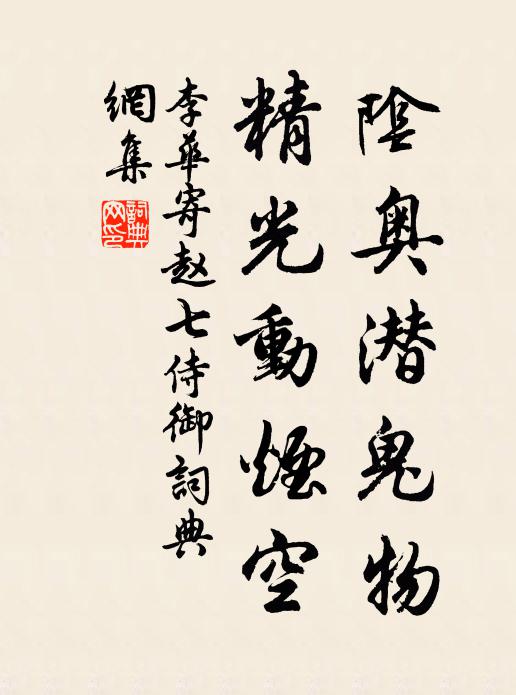 陰奥潜鬼物
精光動煙空
李華寄赵七侍御詞典
網集
詞典
网印